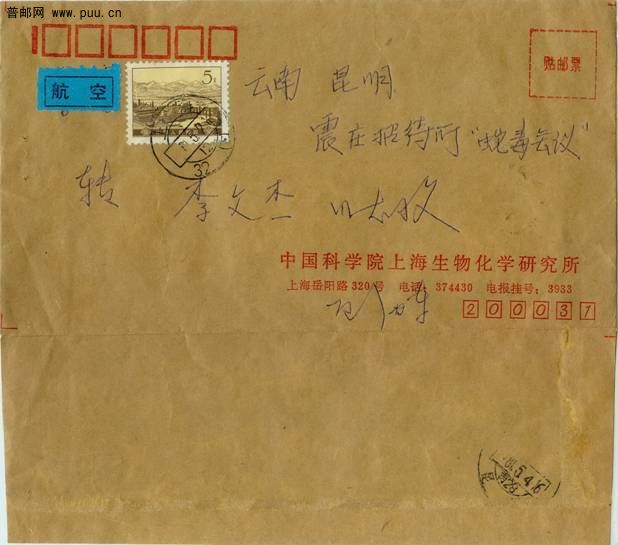 普邮网 www.puu.cn
航空
5分
贴邮票
云南 昆明
震庄招待所 "蛇毒会议"
转 李文杰 同志收
中国科学院上海生物化学研究所
上海岳阳路320号 电话：374430 电报挂号：3933
200031
32